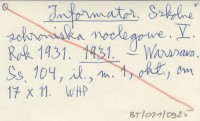 Informator. Szkolne
schroniska noclegowe. V.
Rok 1931. 1931. – Warszawa.
Ss. 104, il., m. 1, okł., cm
17 x 11. WHP
BT/021/0925